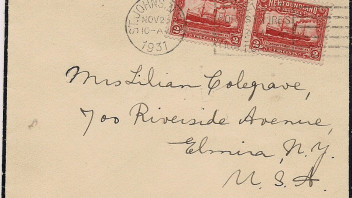 ST. JOHN'S
NOV 23
1931
NEWFOUNDLAND
2 2
Mrs Lilian Colegrave,
700 Riverside Avenue,
Elmira, N.Y.
U.S.A.